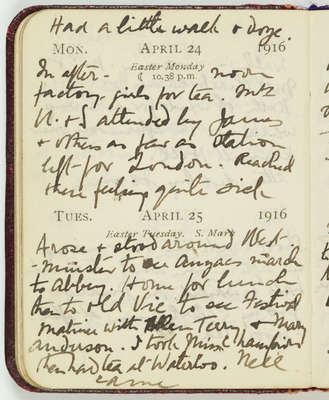 Had a little walk & doze.
MON. APRIL 24 1916
Easter Monday
In after- ☾ 10.38 p.m. noon
factory girls for tea.
N. & I attended by James
& others as far as station
left for London. Reached
there feeling quite sick
TUES. APRIL 25 1916
Easter Tuesday. S. Mark
Arose & stood around West-
-minster to see Anzacs march
to Abbey. Home for lunch
then to Old Vic to see Festival
matinee with Ellen Terry & Mary
Anderson. I took Miss Champion
then had tea at Waterloo. Nell
came